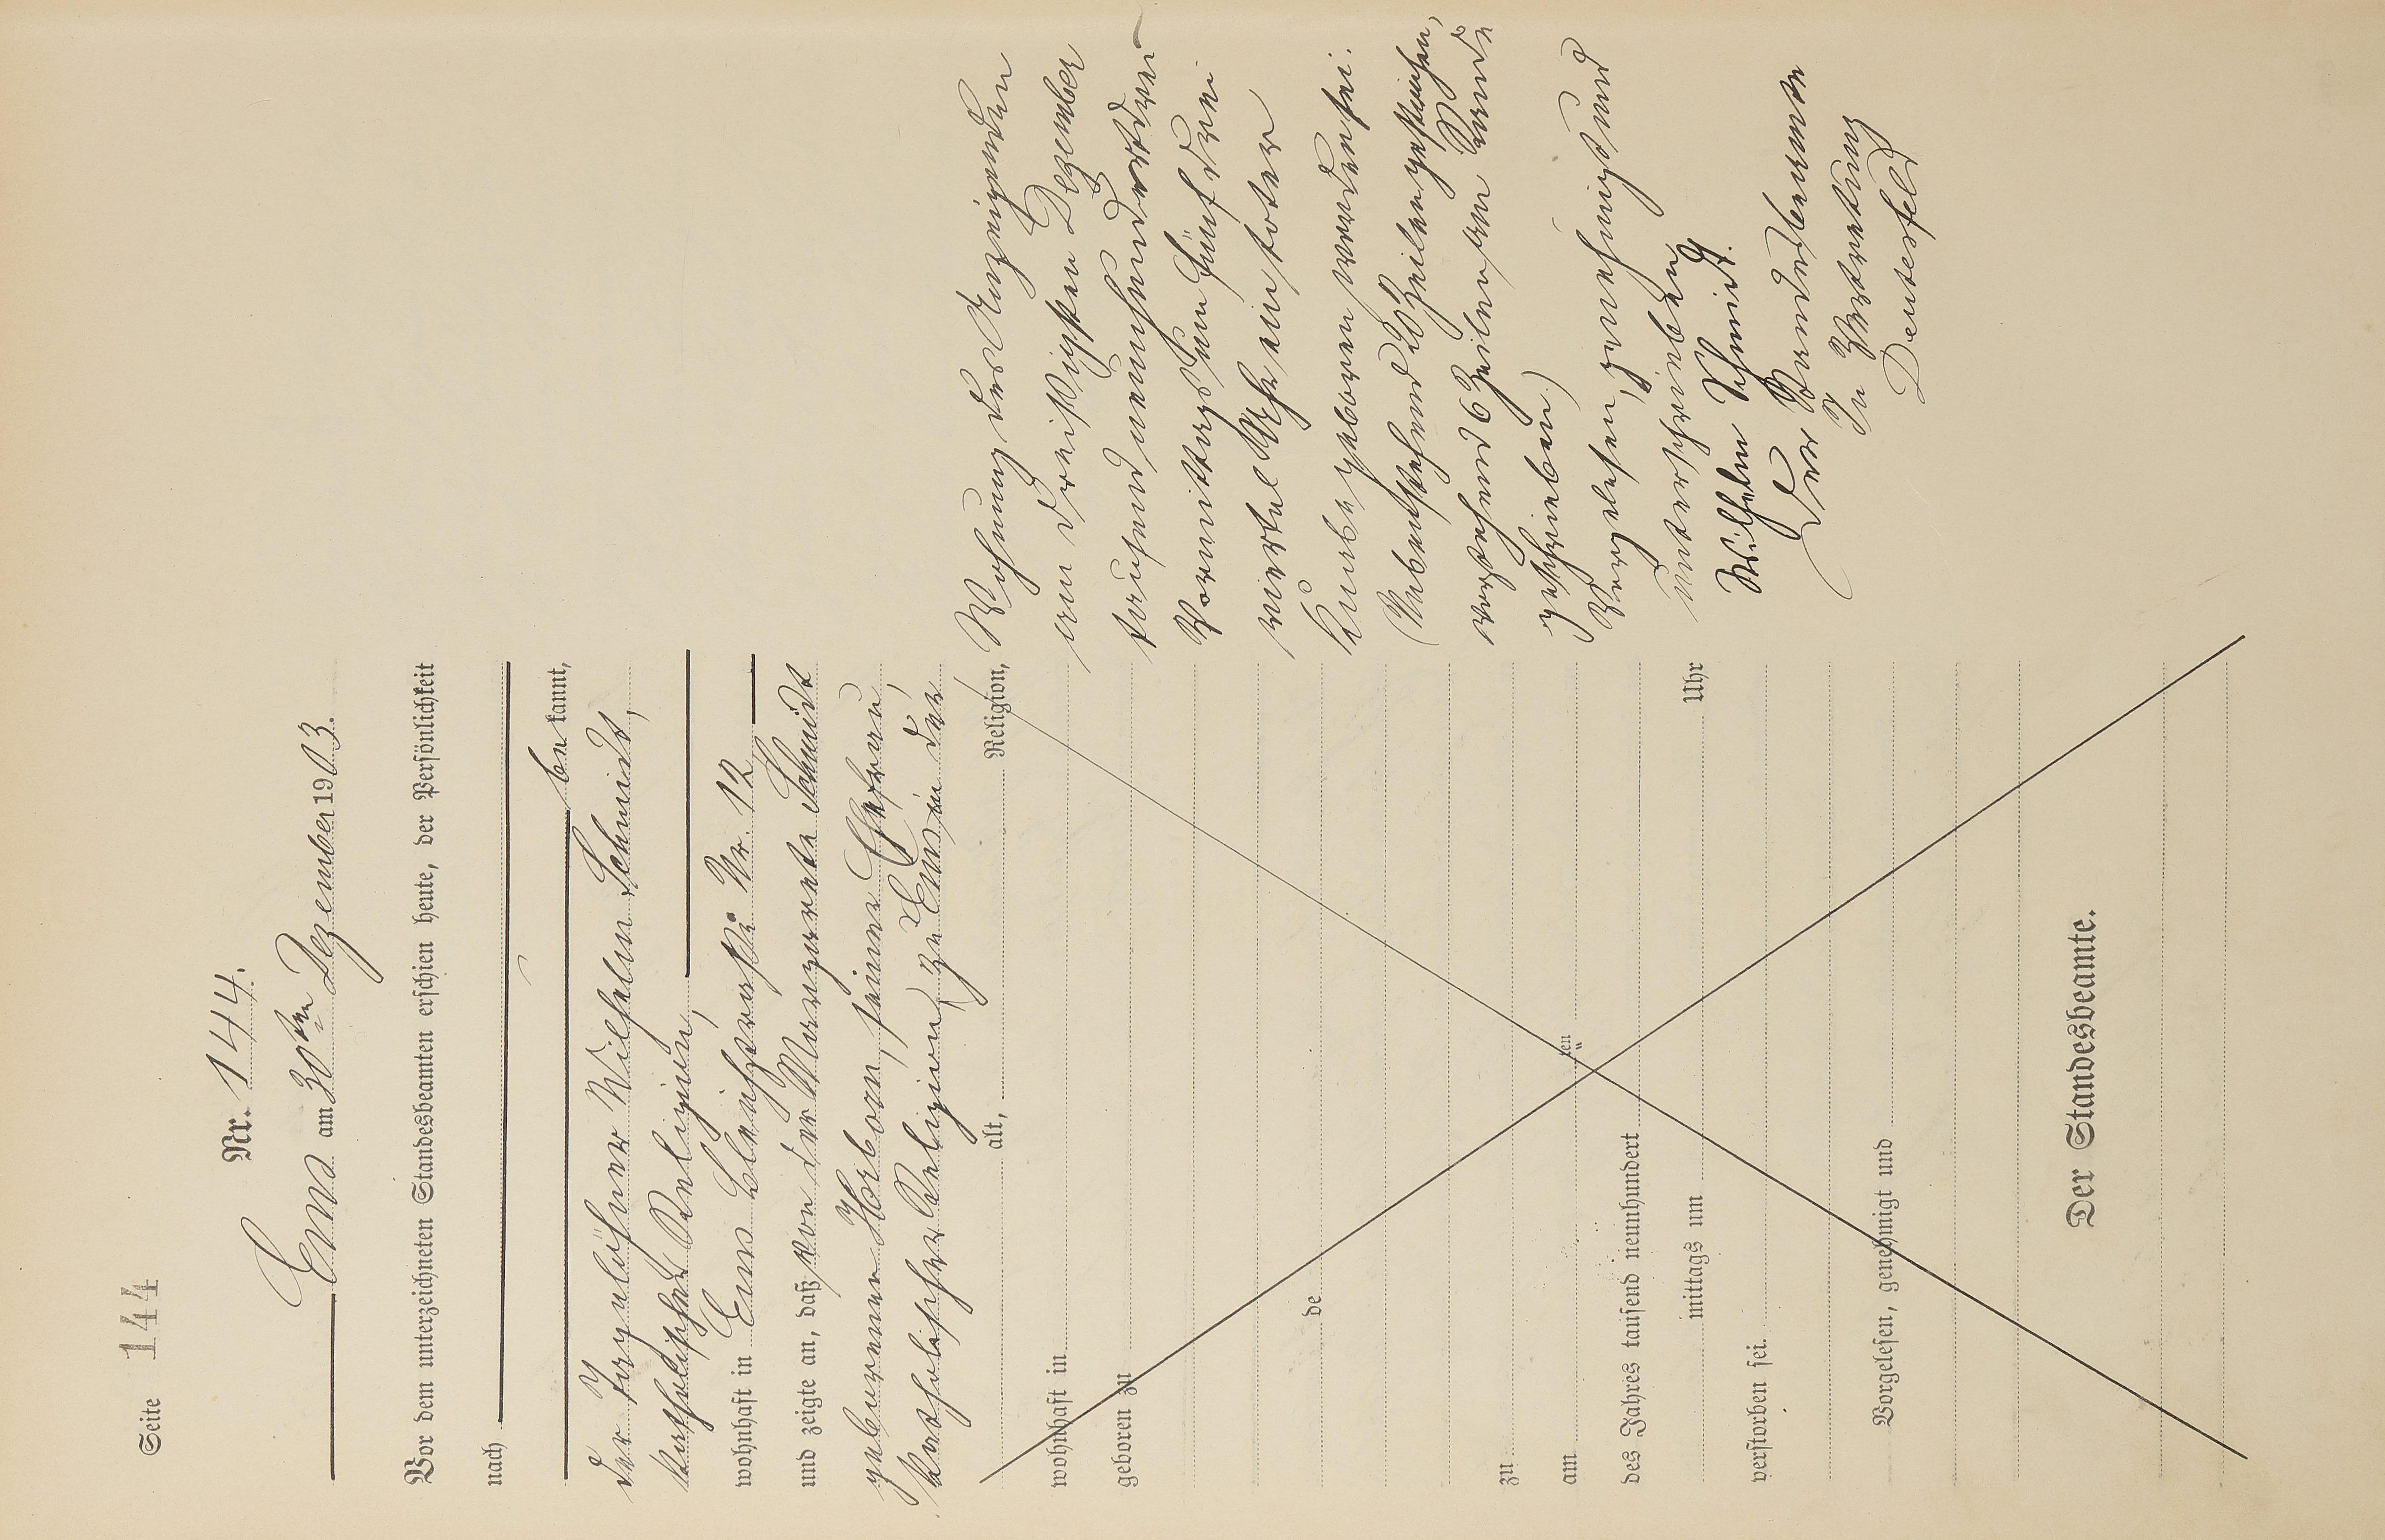 Seite 144
Nr. 144.
Ems am 30ten Dezember 1903.
Vor dem unterzeichneten Standesbeamten erschien heute, der Persönlichkeit
nach
bekannt,
der Tagelöhner Wilhelm Schmidt,
katholischer Religion,
wohnhaft in Ems Bleichstraße Nr. 12
und zeigte an, daß von der Margareta Schmidt
geborenen Herborn, seiner Ehefrau,
katholischer Religion, zu Ems in der
alt, Religion,
wohnhaft in
geboren zu
de
zu
am ten
des Jahres tausend neunhundert
mittags um Uhr
verstorben sei.
Vorgelesen, genehmigt und
Der Standesbeamte.
Wohnung des Anzeigenden
am dreißigsten Dezember
tausend neunhundertdrei
Vormittags um fünf drei
viertel Uhr ein toter
Knabe geboren worden sei.
(Nebenstehend 20 Zeilen gestrichen,
vorstehend 6 Zeilen am Rande
geschrieben.)
Vorgelesen, genehmigt und
unterschrieben
Wilhelm Schmidt.
Der Standesbeamte
In Vertretung